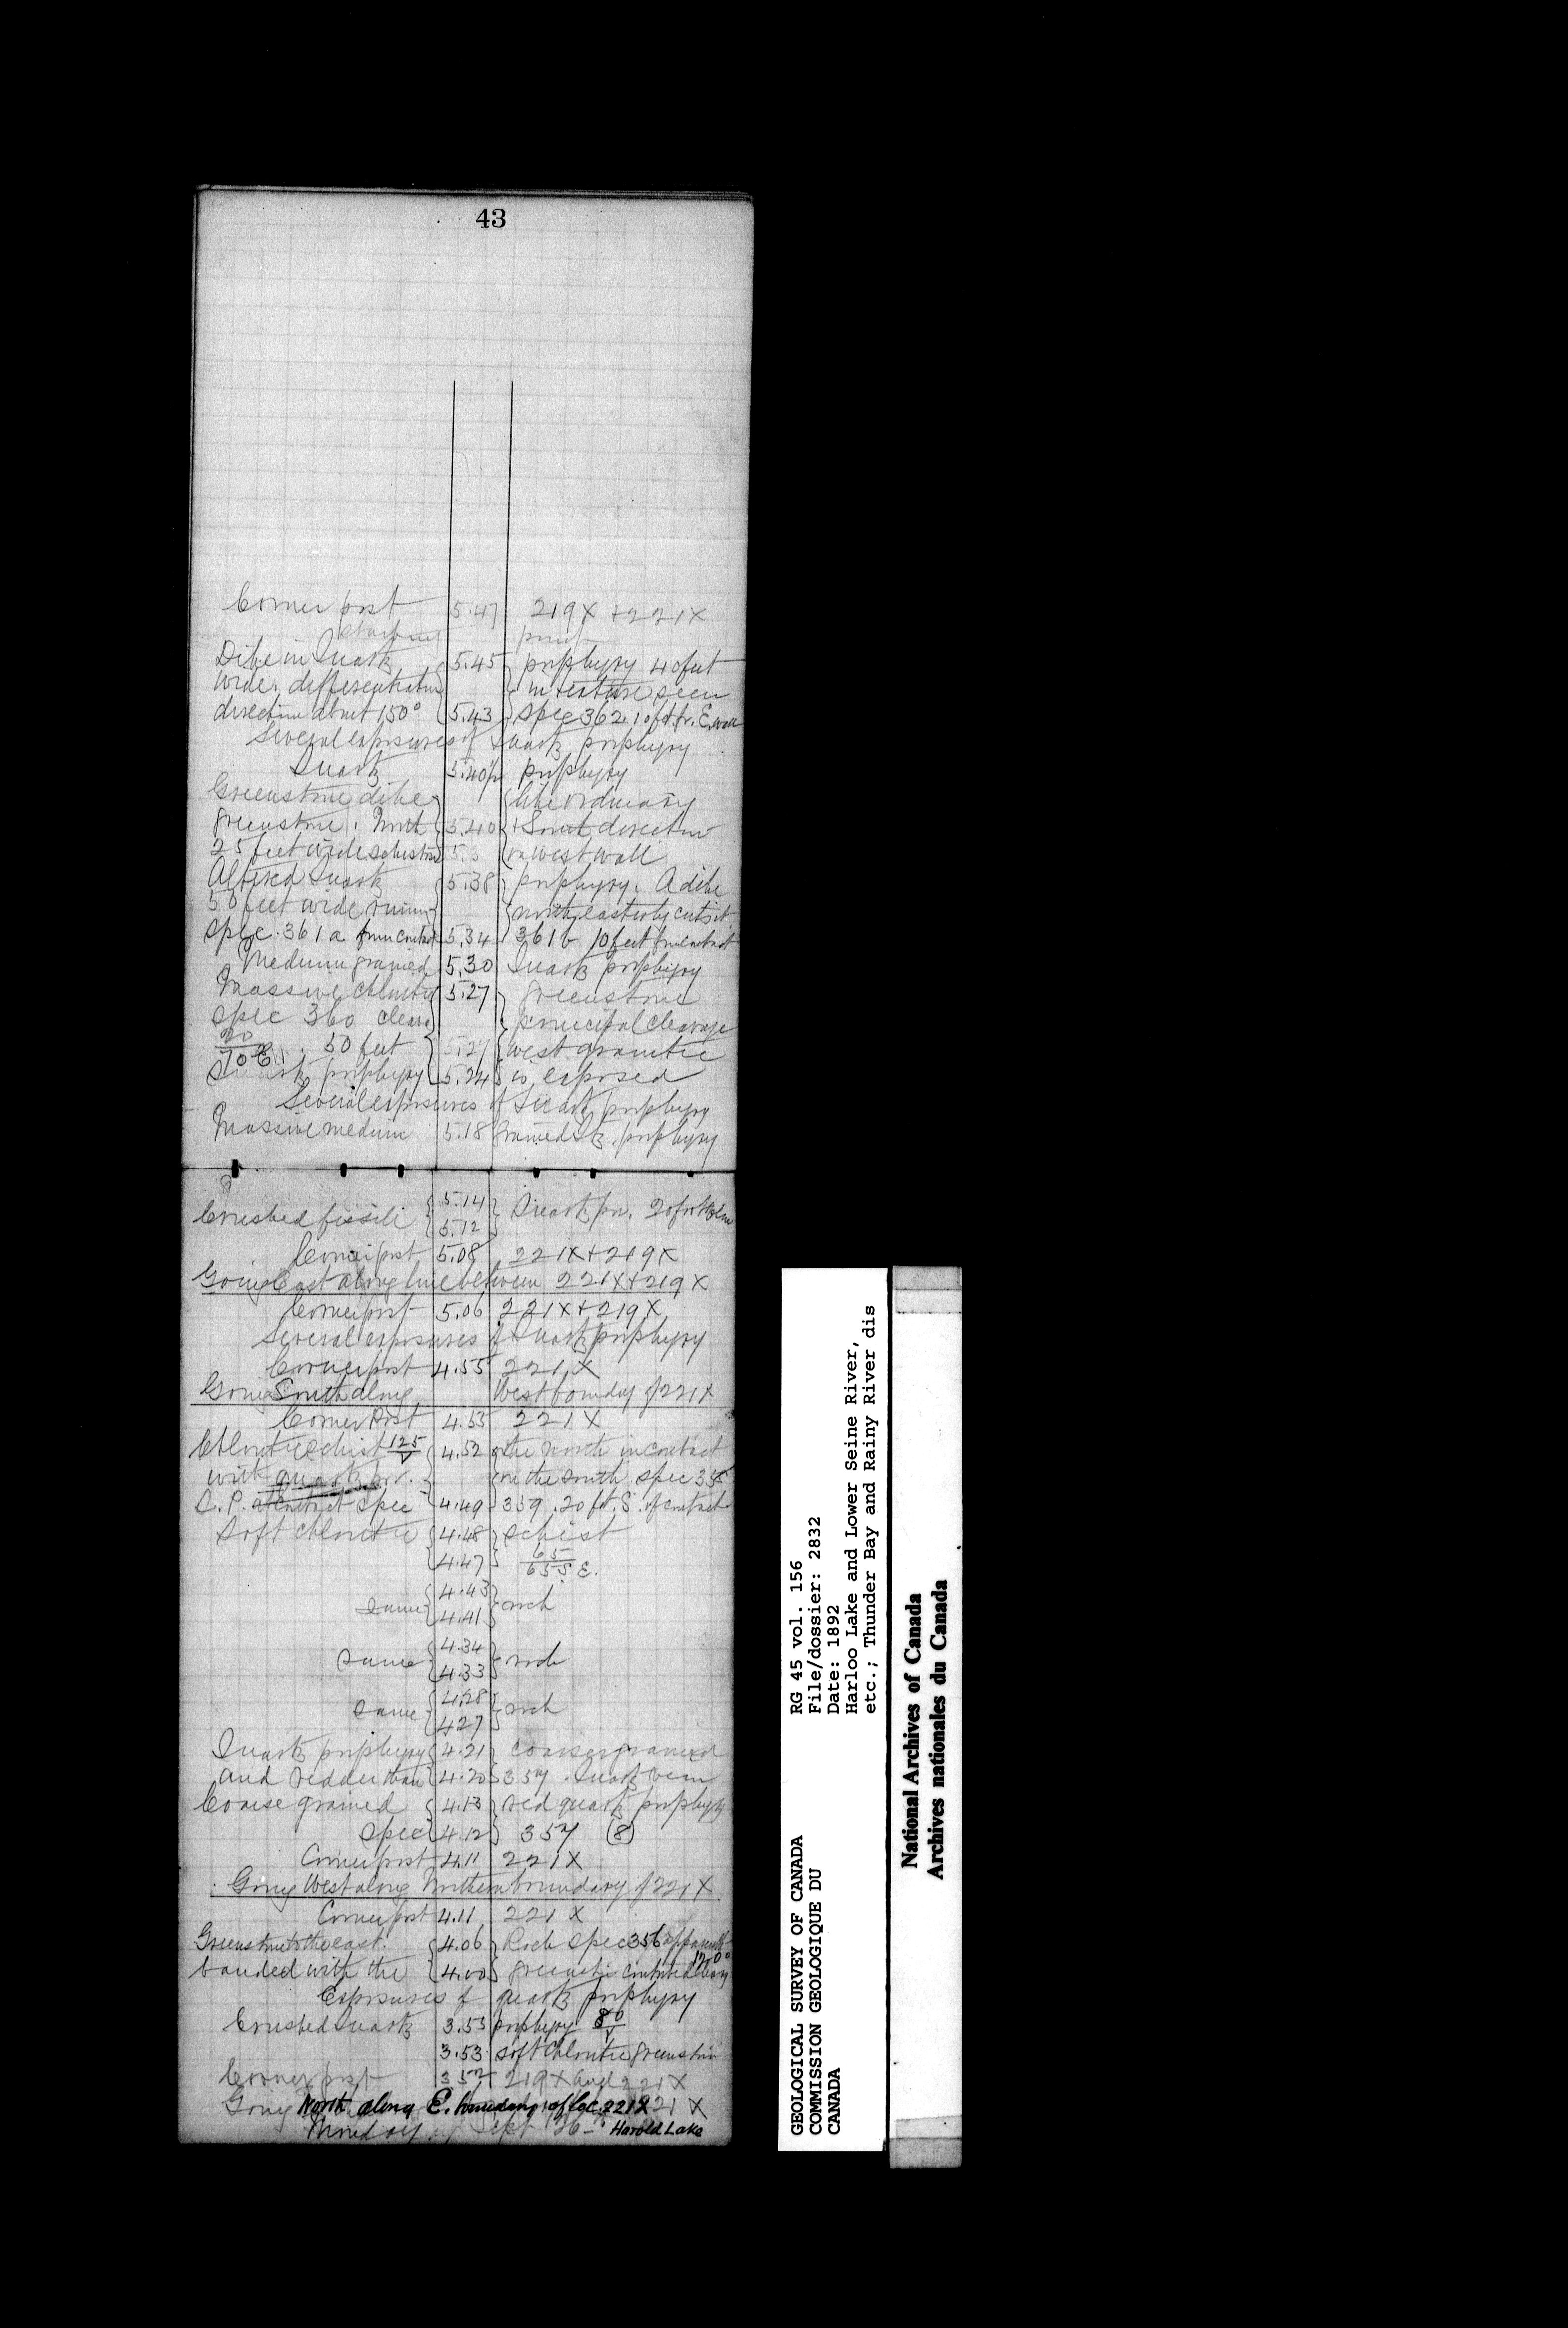 43
Corner post 5.47 219X + 221X
Dike in Quartz 5.45 porphyry 40 feet
wide. differentiation in texture seen
direction about 150° 5.43 spec 362. 10 ft. fr. E. wall
Several exposures of Quartz porphyry
Quartz 5.40½ porphyry
Greenstone dike like ordinary
greenstone. North 5.40 + South direction
25 feet wide schistose on west wall
Altered Quartz 5.38 porphyry. A dike
50 feet wide running north easterly cuts it.
Spec. 361a from contact 5.34 361b 10 feet from contact
Medium grained 5.30 Quartz porphyry
Massive chloritic 5.27 greenstone
spec 360 cleav principal cleavage
90/70 E. 50 feet 5.27 west granitic
Quartz porphyry 5.24 is exposed
Several exposures of Quartz porphyry
Massive medium 5.18 grained Qtz. porphyry
Crushed fissile 5.14 Quartz por. 20 ft
5.12
Corner post 5.08 221X + 219X
Going East along line between 221X + 219X
Corner post 5.06 221X + 219X
Several exposures of Quartz porphyry
Corner post 4.55 221X
Going South along West boundary of 221X
Corner Post 4.55 221X
Chlorite schist 125/V 4.52 the north in contact
with quartz por. on the south spec 358
Q.P. at contact spec 4.49 359. 20 ft. S. of contact
Soft chloritic 4.48 schist
4.47 65/65 S E.
same 4.43 rock
4.41
same 4.34 rock
4.33
same 4.28 rock
4.27
Quartz porphyry 4.21 coarser grained
and redder than 4.20 357. Quartz vein
Coarse grained 4.13 red quartz porphyry
Spec 4.12 357 (8)
Corner post 4.11 221X
Going West along Northern boundary of 221X
Corner post 4.11 221X
Greenstone to the east. 4.06 Rock spec 356 apparently
banded with the 4.00 greenstone
Exposures of quartz porphyry
Crushed Quartz 3.55 porphyry 80/V
3.53 soft chloritic greenstone
Corner post 3.52 219X and 221X
Going North along E. boundary of loc 221X
Monday Sept 26 Harold Lake
GEOLOGICAL SURVEY OF CANADA RG 45 vol. 156
COMMISSION GEOLOGIQUE DU File/dossier: 2832
CANADA Date: 1892
Harloo Lake and Lower Seine River,
etc.; Thunder Bay and Rainy River dis
National Archives of Canada
Archives nationales du Canada